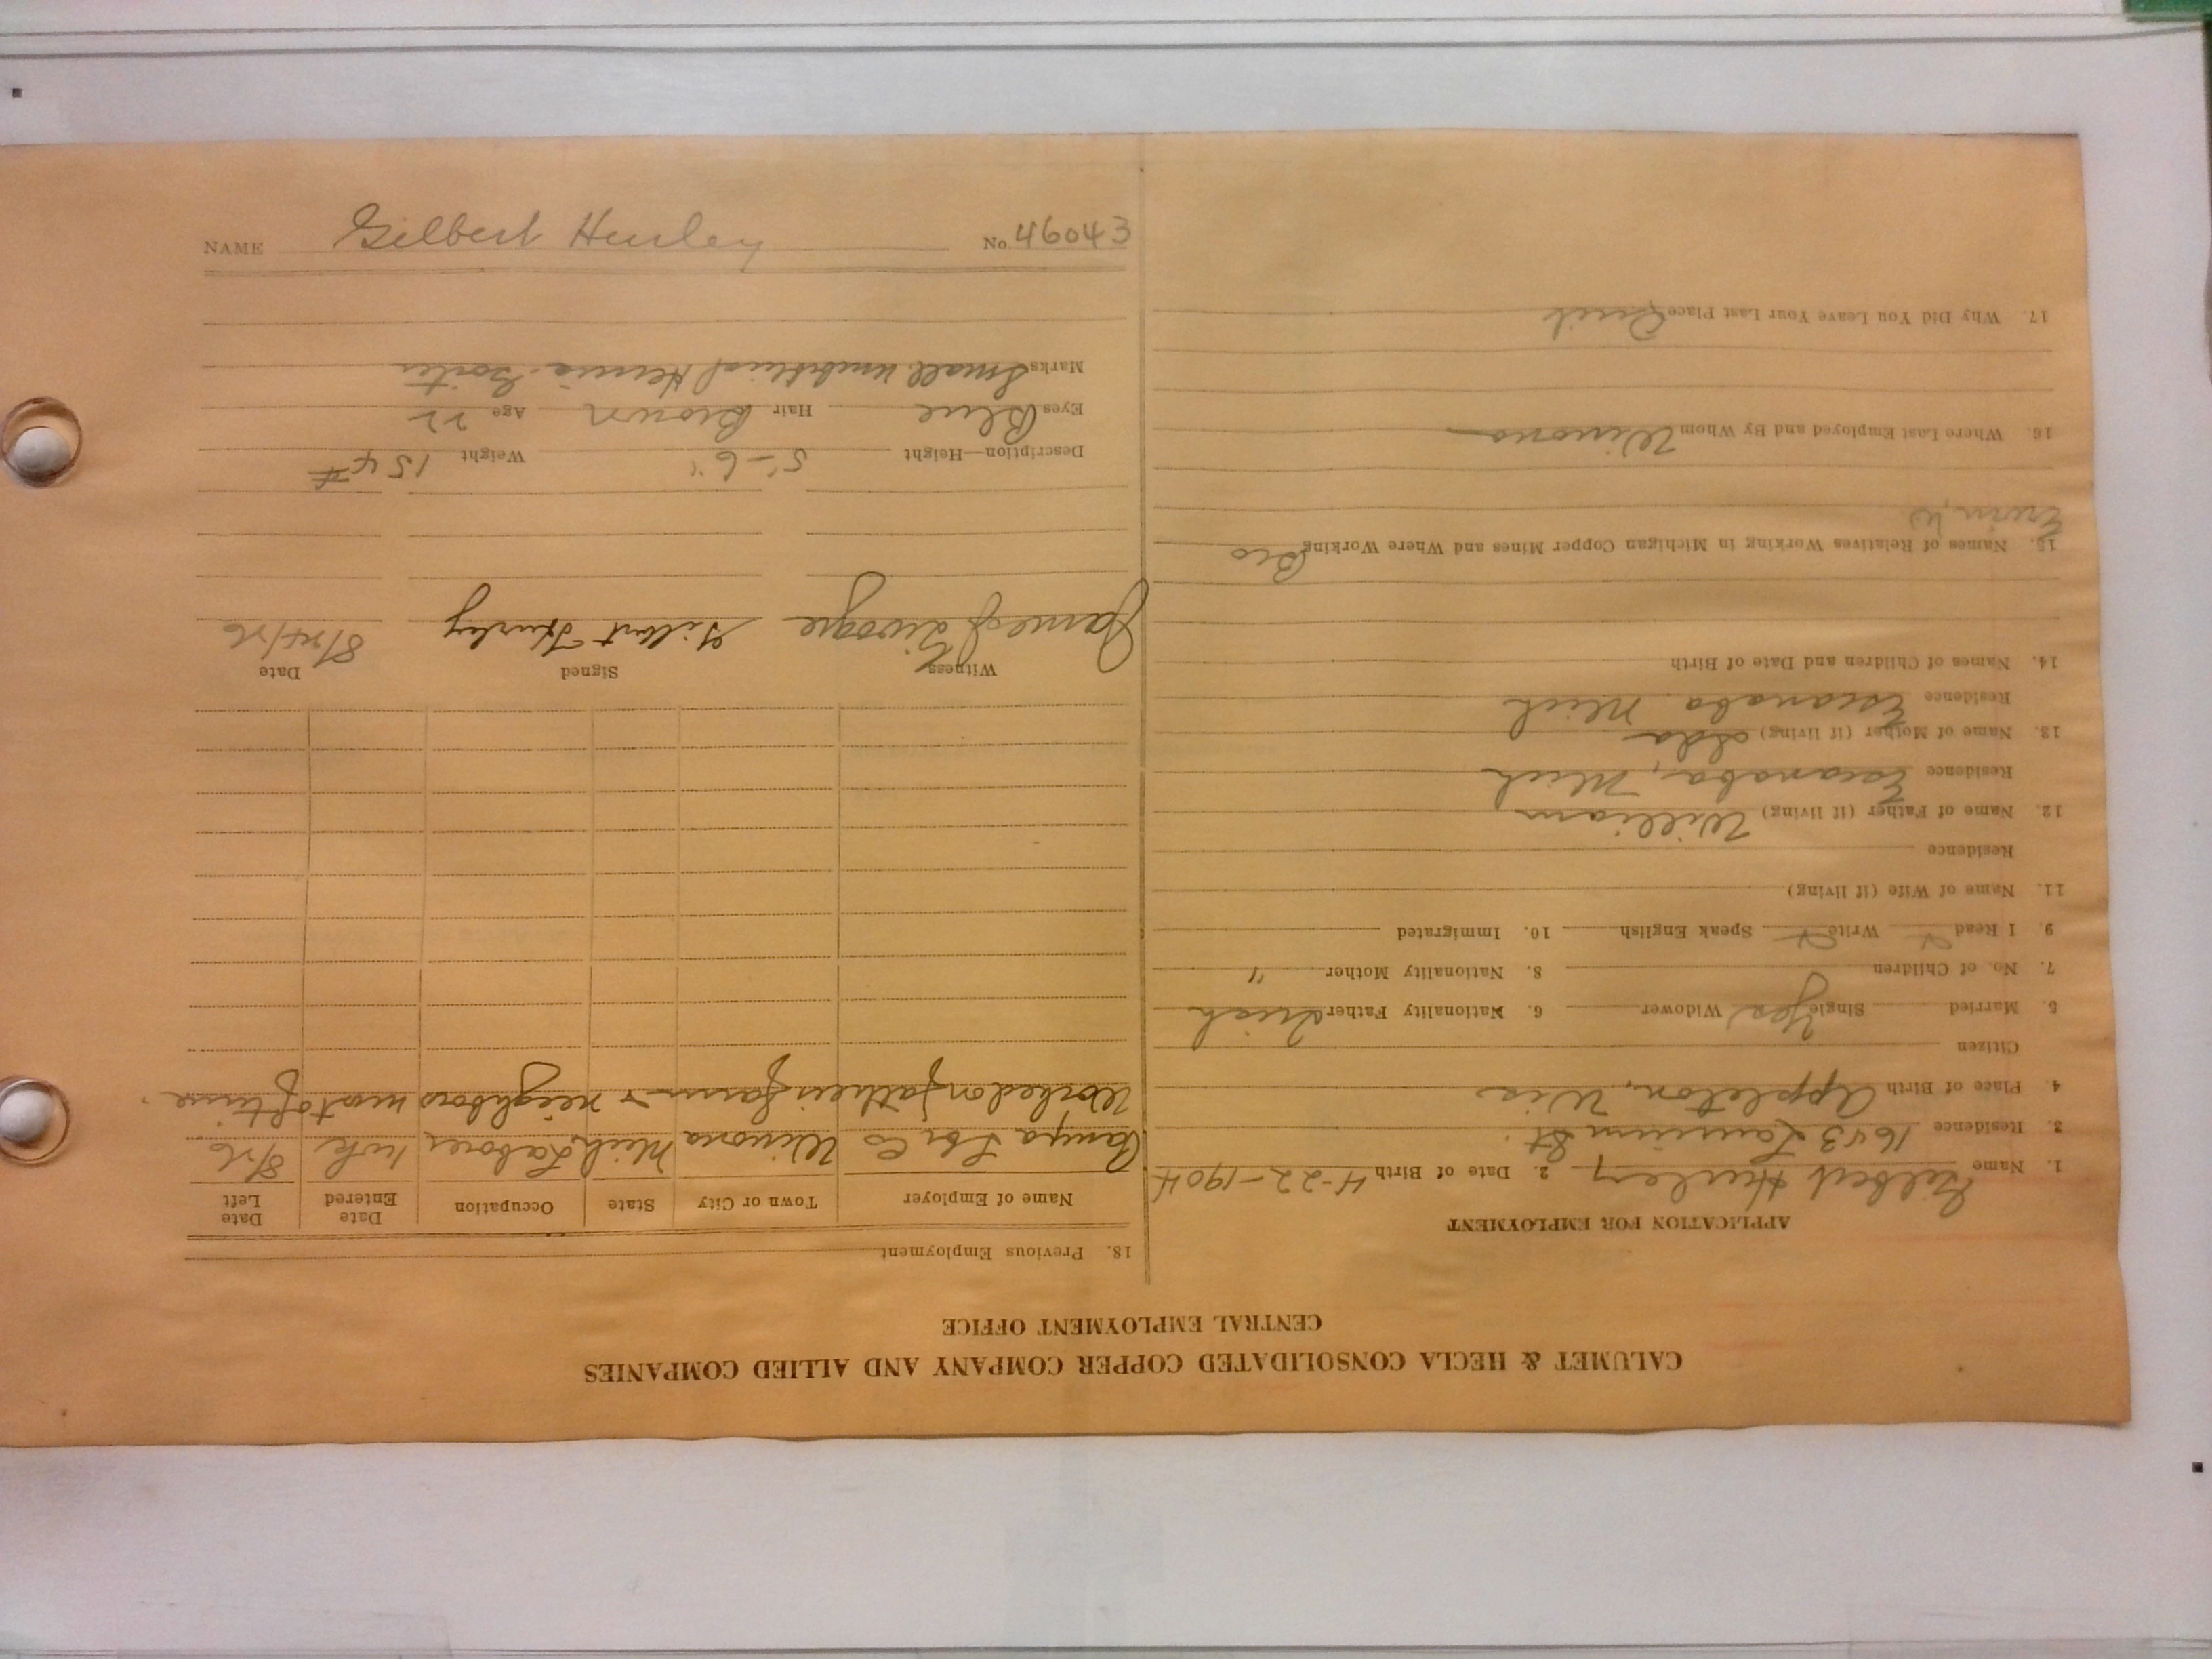 NAME Gilbert Hurley No. 46043
CALUMET & HECLA CONSOLIDATED COPPER COMPANY AND ALLIED COMPANIES
CENTRAL EMPLOYMENT OFFICE
APPLICATION FOR EMPLOYMENT
1. Name Gilbert Hurley 2. Date of Birth 4-22-1904
3. Residence 1643 Laurium St.
4. Place of Birth Appleton, Wis
Citizen
5. Married Single Yes Widower 6. Nationality Father Irish
7. No. of Children 8. Nationality Mother "
9. I Read Write Speak English 10. Immigrated
11. Name of Wife (if living)
Residence
12. Name of Father (if living) William
Residence Escanaba, Mich
13. Name of Mother (if living) Ida
Residence Escanaba Mich
14. Names of Children and Date of Birth
15. Names of Relatives Working in Michigan Copper Mines and Where Working Bro
Erwin,
16. Where Last Employed and By Whom Winona
17. Why Did You Leave Your Last Place Quit
18. Previous Employment
Name of Employer Town or City State Occupation Date Entered Date Left
Lbr Co Winona Mich Laborer 1 wk 8/26
Worked on fathers farm + neighbors most of time.
Witness Signed Date
James Gilbert Hurley 8/24/26
Description—Height 5'-6" Weight 154 #
Eyes Blue Hair Brown Age 22
Marks Small umbilical Hernia. Goiter